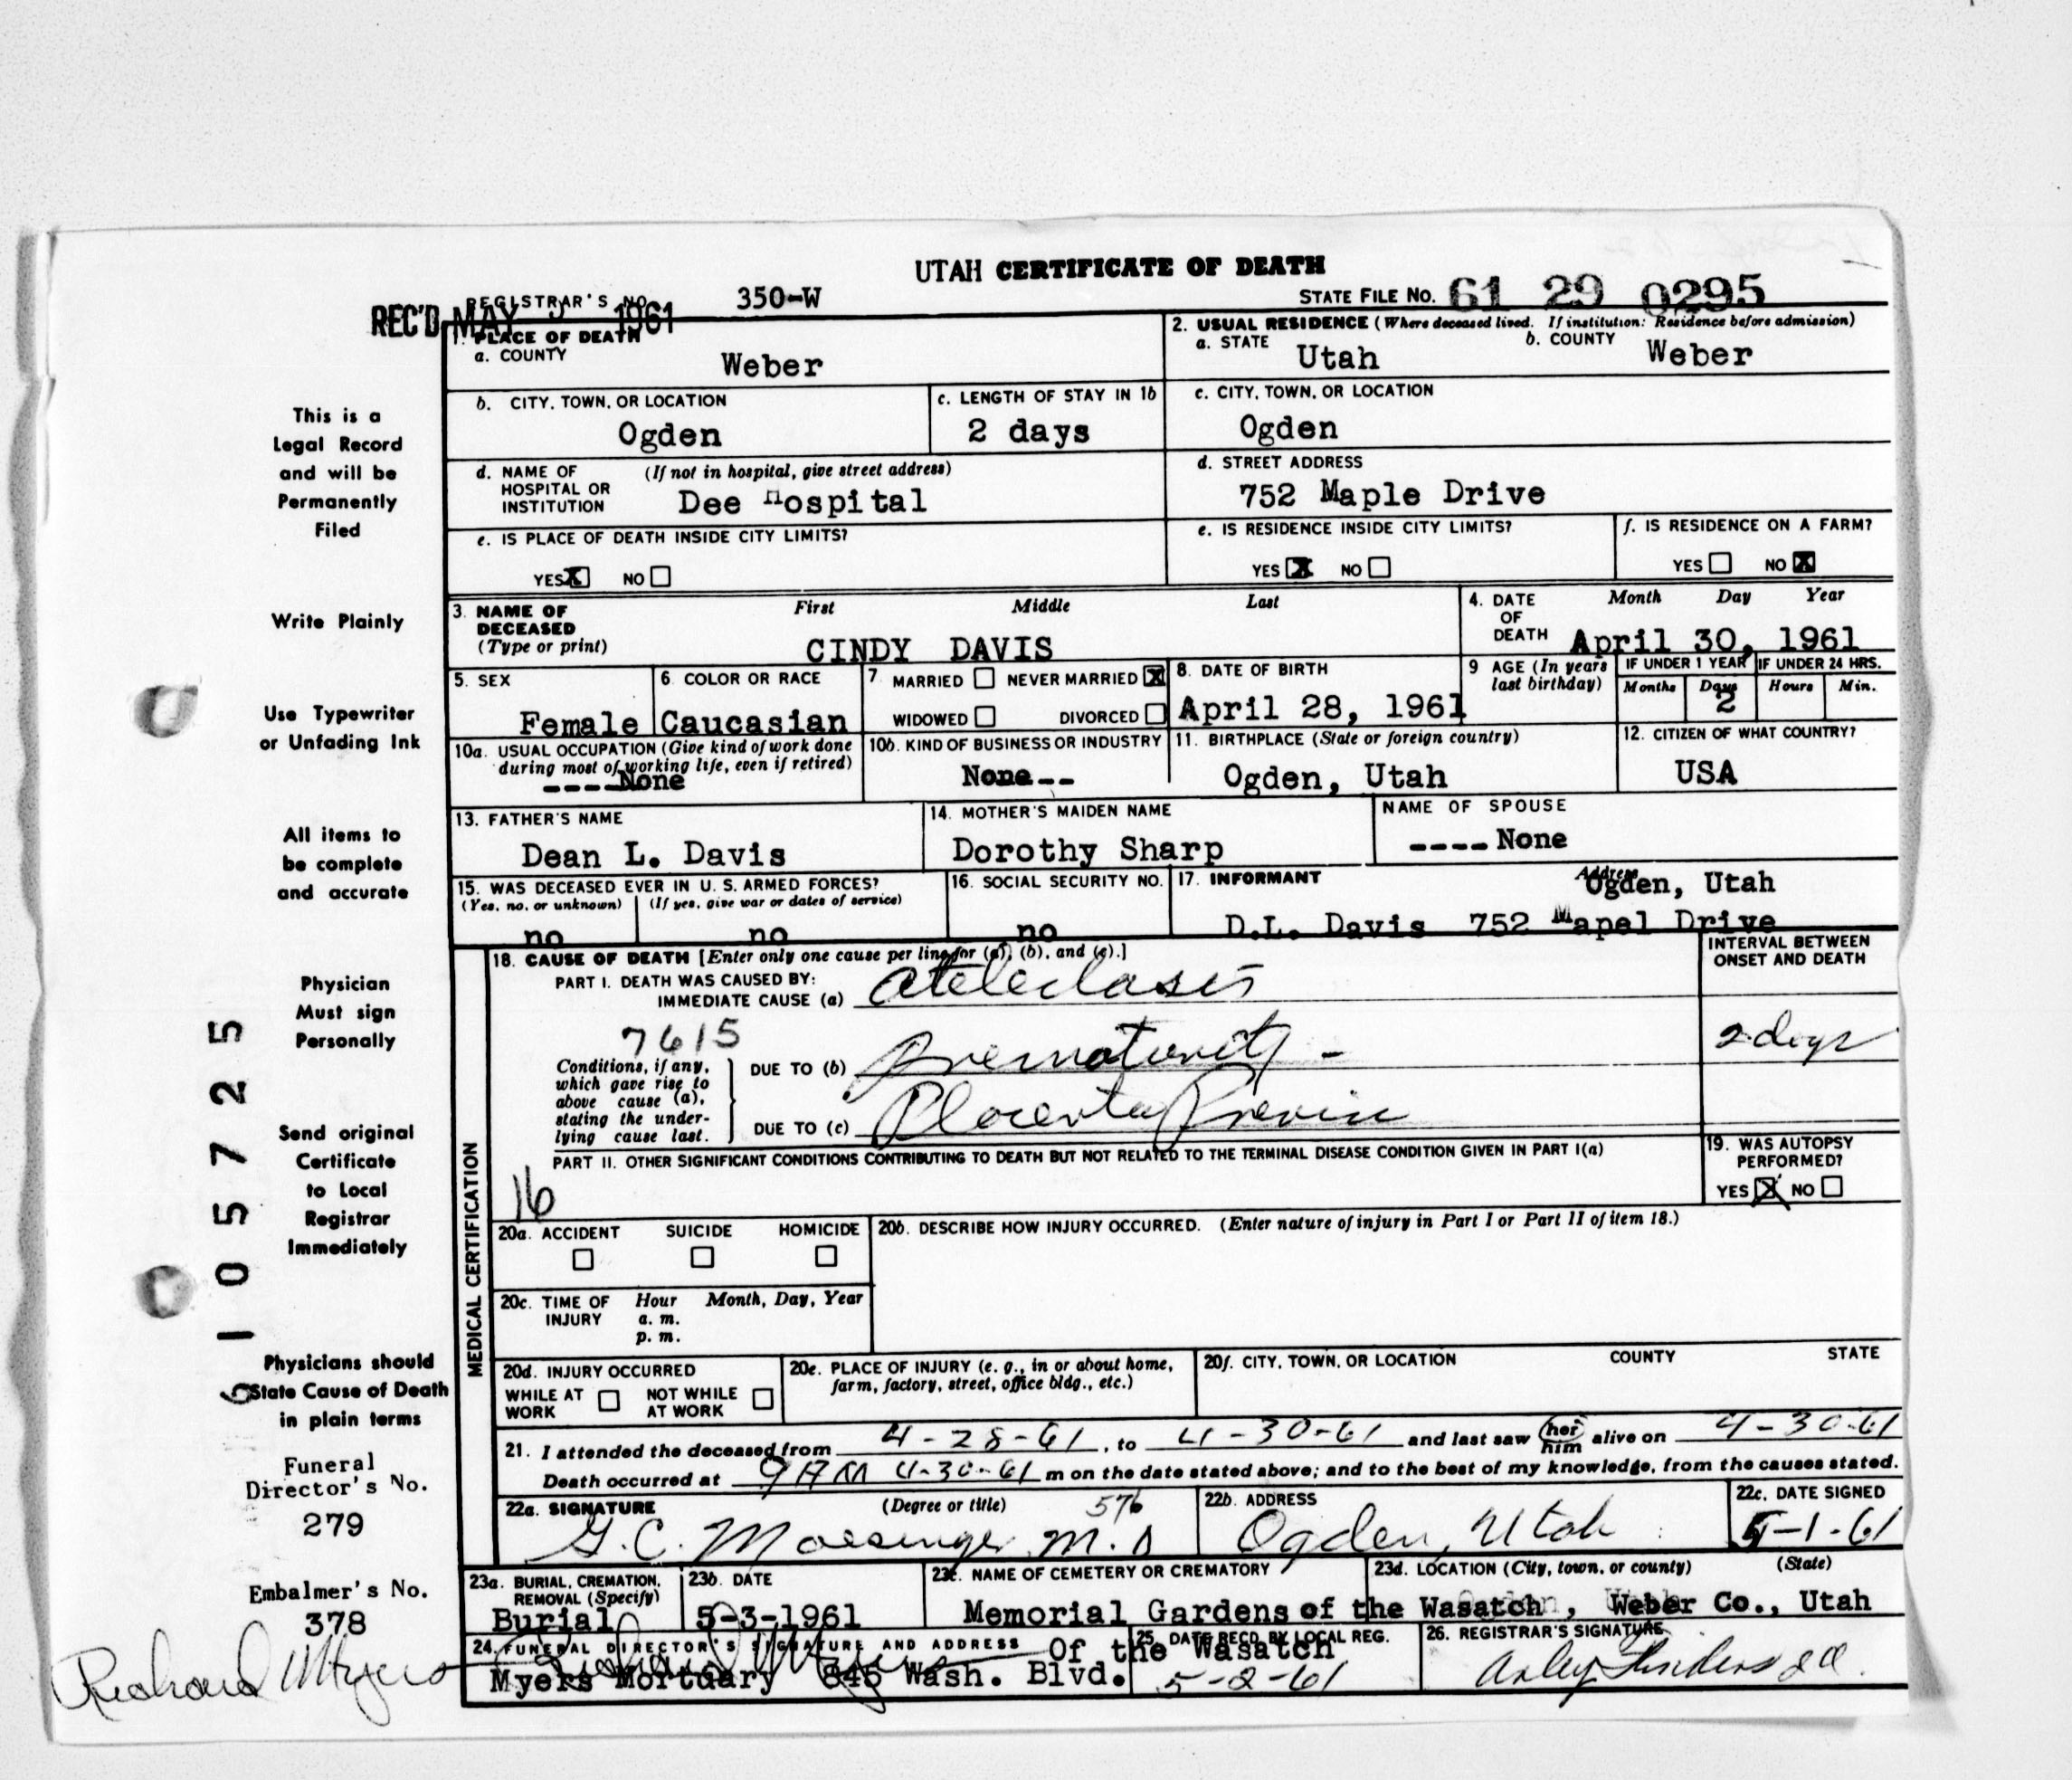 UTAH CERTIFICATE OF DEATH
REGISTRAR'S NO. 350-W
STATE FILE No. 61 29 0295
REC'D MAY 1961
1. PLACE OF DEATH
a. COUNTY
Weber
2. USUAL RESIDENCE (Where deceased lived. If institution: Residence before admission)
a. STATE Utah b. COUNTY Weber
b. CITY, TOWN, OR LOCATION
Ogden
c. LENGTH OF STAY IN 1b
2 days
c. CITY, TOWN, OR LOCATION
Ogden
d. NAME OF HOSPITAL OR INSTITUTION (If not in hospital, give street address)
Dee Hospital
d. STREET ADDRESS
752 Maple Drive
e. IS PLACE OF DEATH INSIDE CITY LIMITS?
YES X NO
e. IS RESIDENCE INSIDE CITY LIMITS?
YES X NO
f. IS RESIDENCE ON A FARM?
YES NO X
3. NAME OF DECEASED (Type or print)
First Middle Last
CINDY DAVIS
4. DATE OF DEATH
Month Day Year
April 30, 1961
5. SEX
Female
6. COLOR OR RACE
Caucasian
7 MARRIED NEVER MARRIED X
WIDOWED DIVORCED
8. DATE OF BIRTH
April 28, 1961
9 AGE (In years last birthday)
IF UNDER 1 YEAR
Months Days
2
IF UNDER 24 HRS.
Hours Min.
10a. USUAL OCCUPATION (Give kind of work done during most of working life, even if retired)
----None
10b. KIND OF BUSINESS OR INDUSTRY
None--
11. BIRTHPLACE (State or foreign country)
Ogden, Utah
12. CITIZEN OF WHAT COUNTRY?
USA
13. FATHER'S NAME
Dean L. Davis
14. MOTHER'S MAIDEN NAME
Dorothy Sharp
NAME OF SPOUSE
----None
15. WAS DECEASED EVER IN U. S. ARMED FORCES?
(Yes, no, or unknown) (If yes, give war or dates of service)
no no
16. SOCIAL SECURITY NO.
no
17. INFORMANT Address
Ogden, Utah
D.L. Davis 752 Mapel Drive
MEDICAL CERTIFICATION
18. CAUSE OF DEATH [Enter only one cause per line for (a), (b), and (c).]
INTERVAL BETWEEN ONSET AND DEATH
PART I. DEATH WAS CAUSED BY:
IMMEDIATE CAUSE (a) Atelectasis
7615
Conditions, if any, which gave rise to above cause (a), stating the underlying cause last.
DUE TO (b) Prematurity - 2 days
DUE TO (c) Placenta Previa
PART II. OTHER SIGNIFICANT CONDITIONS CONTRIBUTING TO DEATH BUT NOT RELATED TO THE TERMINAL DISEASE CONDITION GIVEN IN PART I(a)
16
19. WAS AUTOPSY PERFORMED?
YES X NO
20a. ACCIDENT SUICIDE HOMICIDE
20b. DESCRIBE HOW INJURY OCCURRED. (Enter nature of injury in Part I or Part II of item 18.)
20c. TIME OF INJURY Hour a. m. p. m. Month, Day, Year
20d. INJURY OCCURRED
WHILE AT WORK NOT WHILE AT WORK
20e. PLACE OF INJURY (e. g., in or about home, farm, factory, street, office bldg., etc.)
20f. CITY, TOWN, OR LOCATION COUNTY STATE
21. I attended the deceased from 4-28-61, to 4-30-61 and last saw her him alive on 4-30-61
Death occurred at 9 AM 4-30-61 m on the date stated above; and to the best of my knowledge, from the causes stated.
22a. SIGNATURE (Degree or title) 576
G. C. Moesinger M. D
22b. ADDRESS
Ogden, Utah
22c. DATE SIGNED
5-1-61
23a. BURIAL, CREMATION, REMOVAL (Specify)
Burial
23b. DATE
5-3-1961
23c. NAME OF CEMETERY OR CREMATORY
23d. LOCATION (City, town, or county) (State)
Memorial Gardens of the Wasatch, Weber Co., Utah
24. FUNERAL DIRECTOR'S SIGNATURE AND ADDRESS
Of the Wasatch
Myers Mortuary 845 Wash. Blvd.
25. DATE RECD. BY LOCAL REG.
5-2-61
26. REGISTRAR'S SIGNATURE
This is a
Legal Record
and will be
Permanently
Filed
Write Plainly
Use Typewriter
or Unfading Ink
All items to
be complete
and accurate
Physician
Must sign
Personally
Send original
Certificate
to Local
Registrar
Immediately
Physicians should
State Cause of Death
in plain terms
Funeral
Director's No.
279
Embalmer's No.
378
Richard Myers
6105725